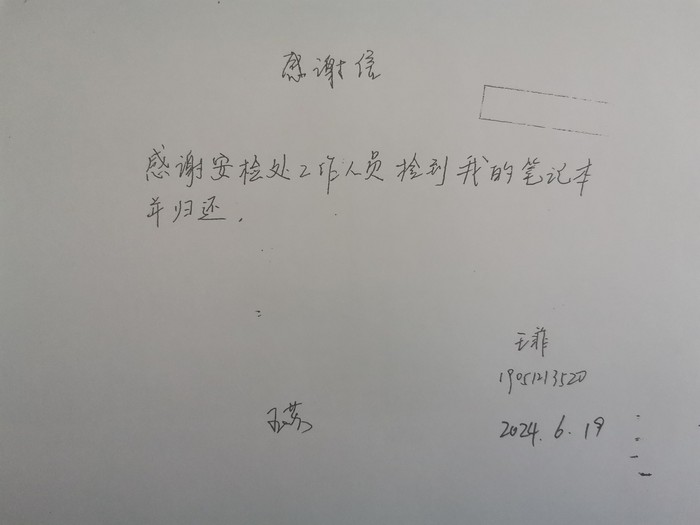 感谢信
感谢安检处工作人员捡到我的笔记本
并归还.
王菲
19051213520
2024.6.19